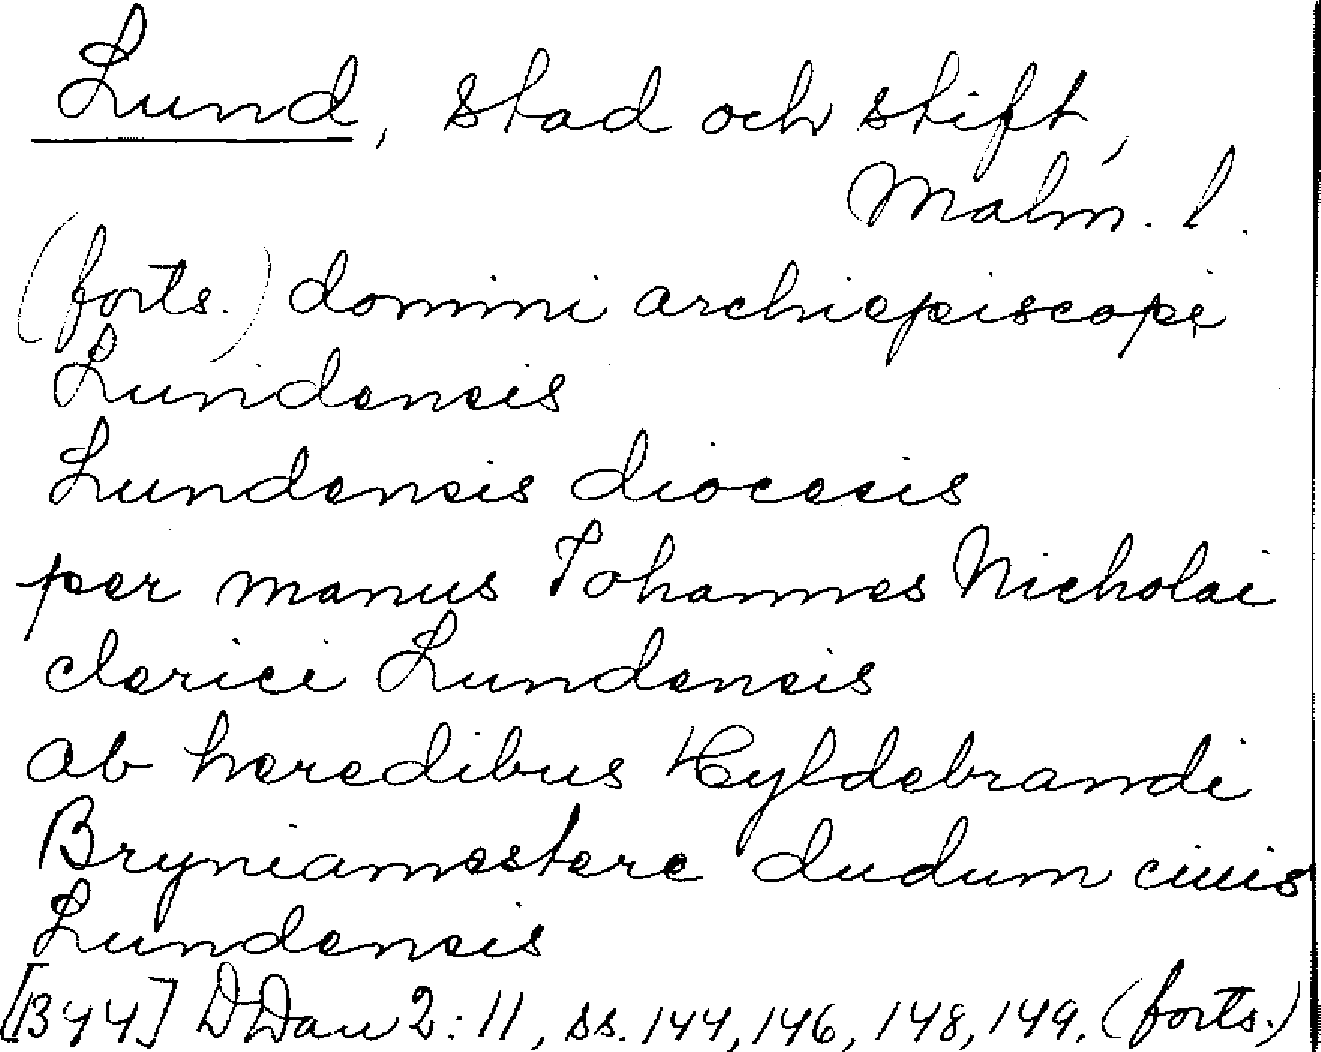 Lund, stad och stift,
Malm. l.
(forts.) domini archiepiscopi
Lundensis
Lundensis diocesis
per manus Johannes Nicholai
clerici Lundensis
ab heredibus Hyldebrandi
Bryniamestere dudum ciuis
Lundensis
[1344] DDan 2:11, ss. 144, 146, 148, 149. (forts.)